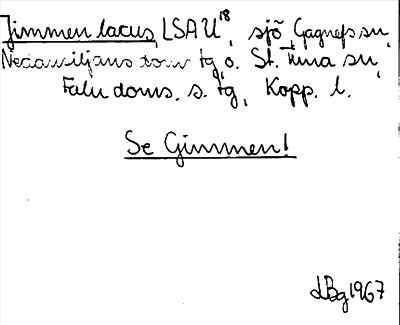 Jimmen lacus, LSA U¹⁸, sjö, Gagnefs sn,
Nedansiljans tg o. St. Tuna sn,
Falu doms. s. tg, Kopp. l.
Se Gimmen!
1967